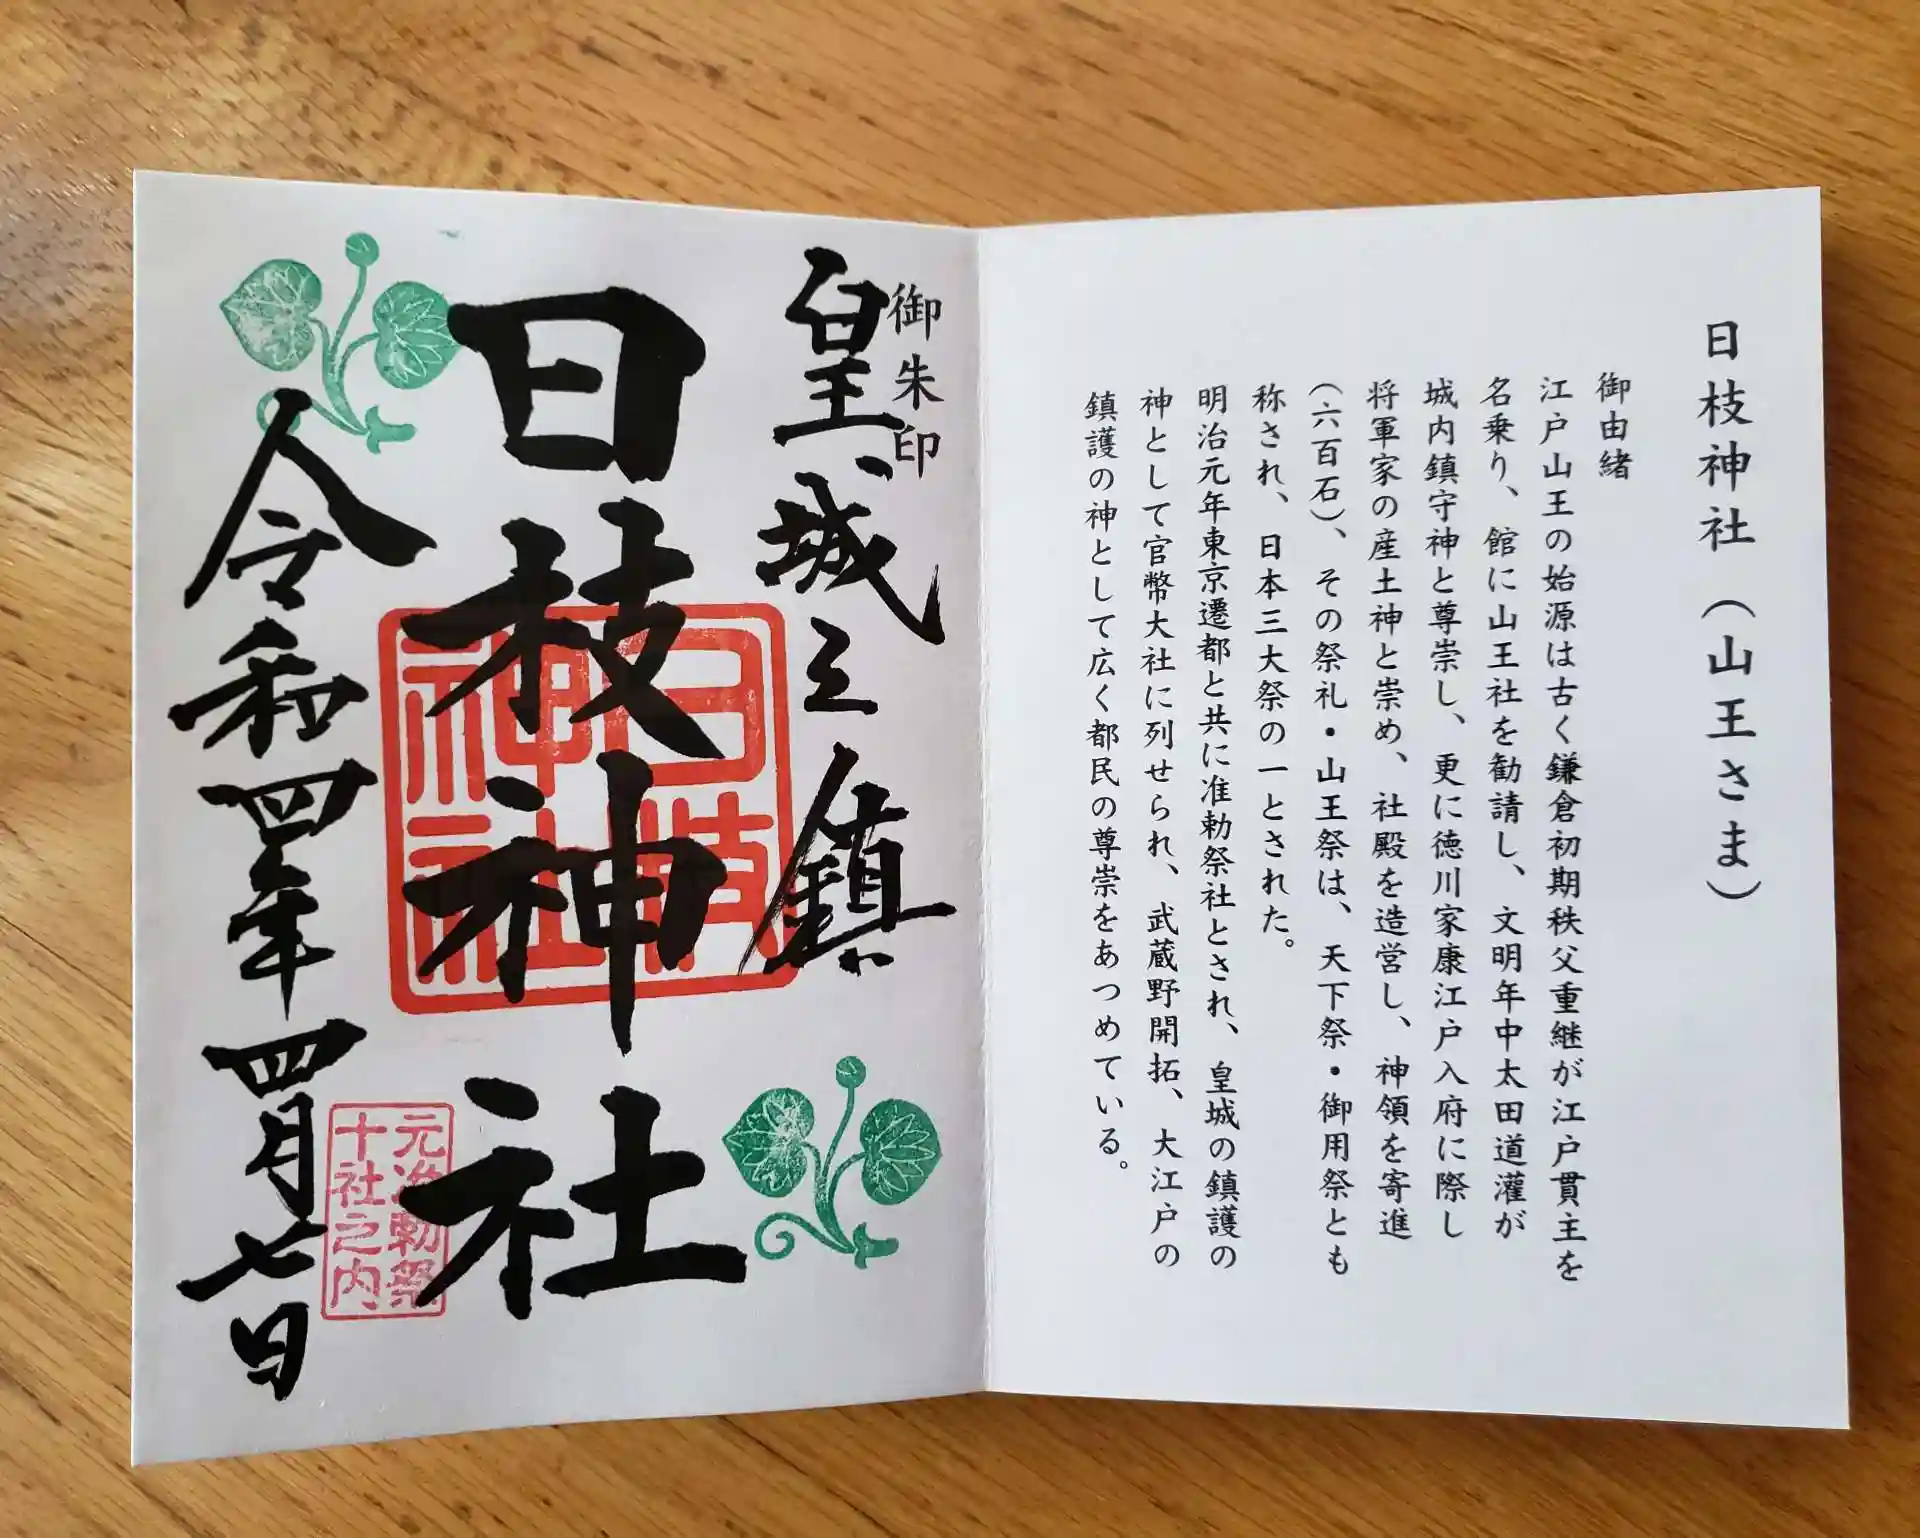 日枝神社（山王さま）
御由緒
江戸山王の始源は古く鎌倉初期秩父重継が江戸貫主を
名乗り、館に山王社を勧請し、文明年中太田道灌が
城内鎮守神と尊崇し、更に徳川家康江戸入府に際し
将軍家の産土神と崇め、社殿を造営し、神領を寄進
（六百石）、その祭礼・山王祭は、天下祭・御用祭とも
称され、日本三大祭の一とされた。
明治元年東京遷都と共に准勅祭社とされ、皇城の鎮護の
神として官幣大社に列せられ、武蔵野開拓、大江戸の
鎮護の神として広く都民の尊崇をあつめている。
御朱印
皇城之鎮
日枝神社
日枝
神社
元准勅祭
十社之内
令和四年四月七日